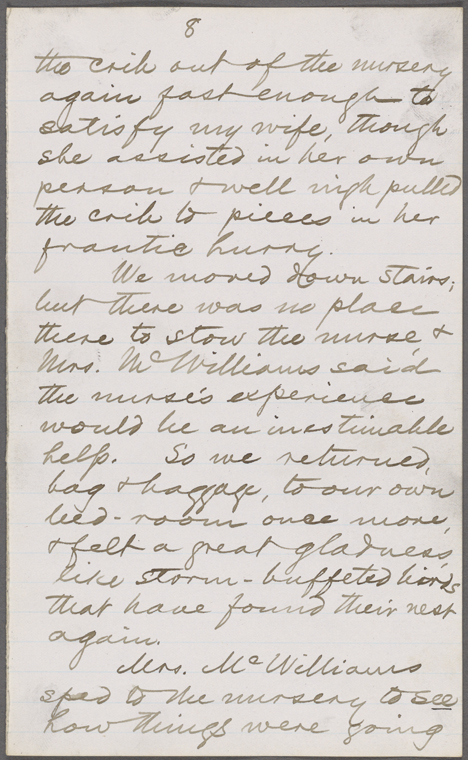 8
the crib out of the nursery
again fast enough to
satisfy my wife, though
she assisted in her own
person & well nigh pulled
the crib to pieces in her
frantic hurry.
We moved down stairs;
but there was no place
there to stow the nurse, &
Mrs. McWilliams said
the nurse's experience
would be an inestimable
help. So we returned,
bag & baggage, to our own
bed-room once more,
& felt a great gladness,
like storm-buffeted birds
that have found their nest
again.
Mrs. McWilliams
sped to the nursery to see
how things were going